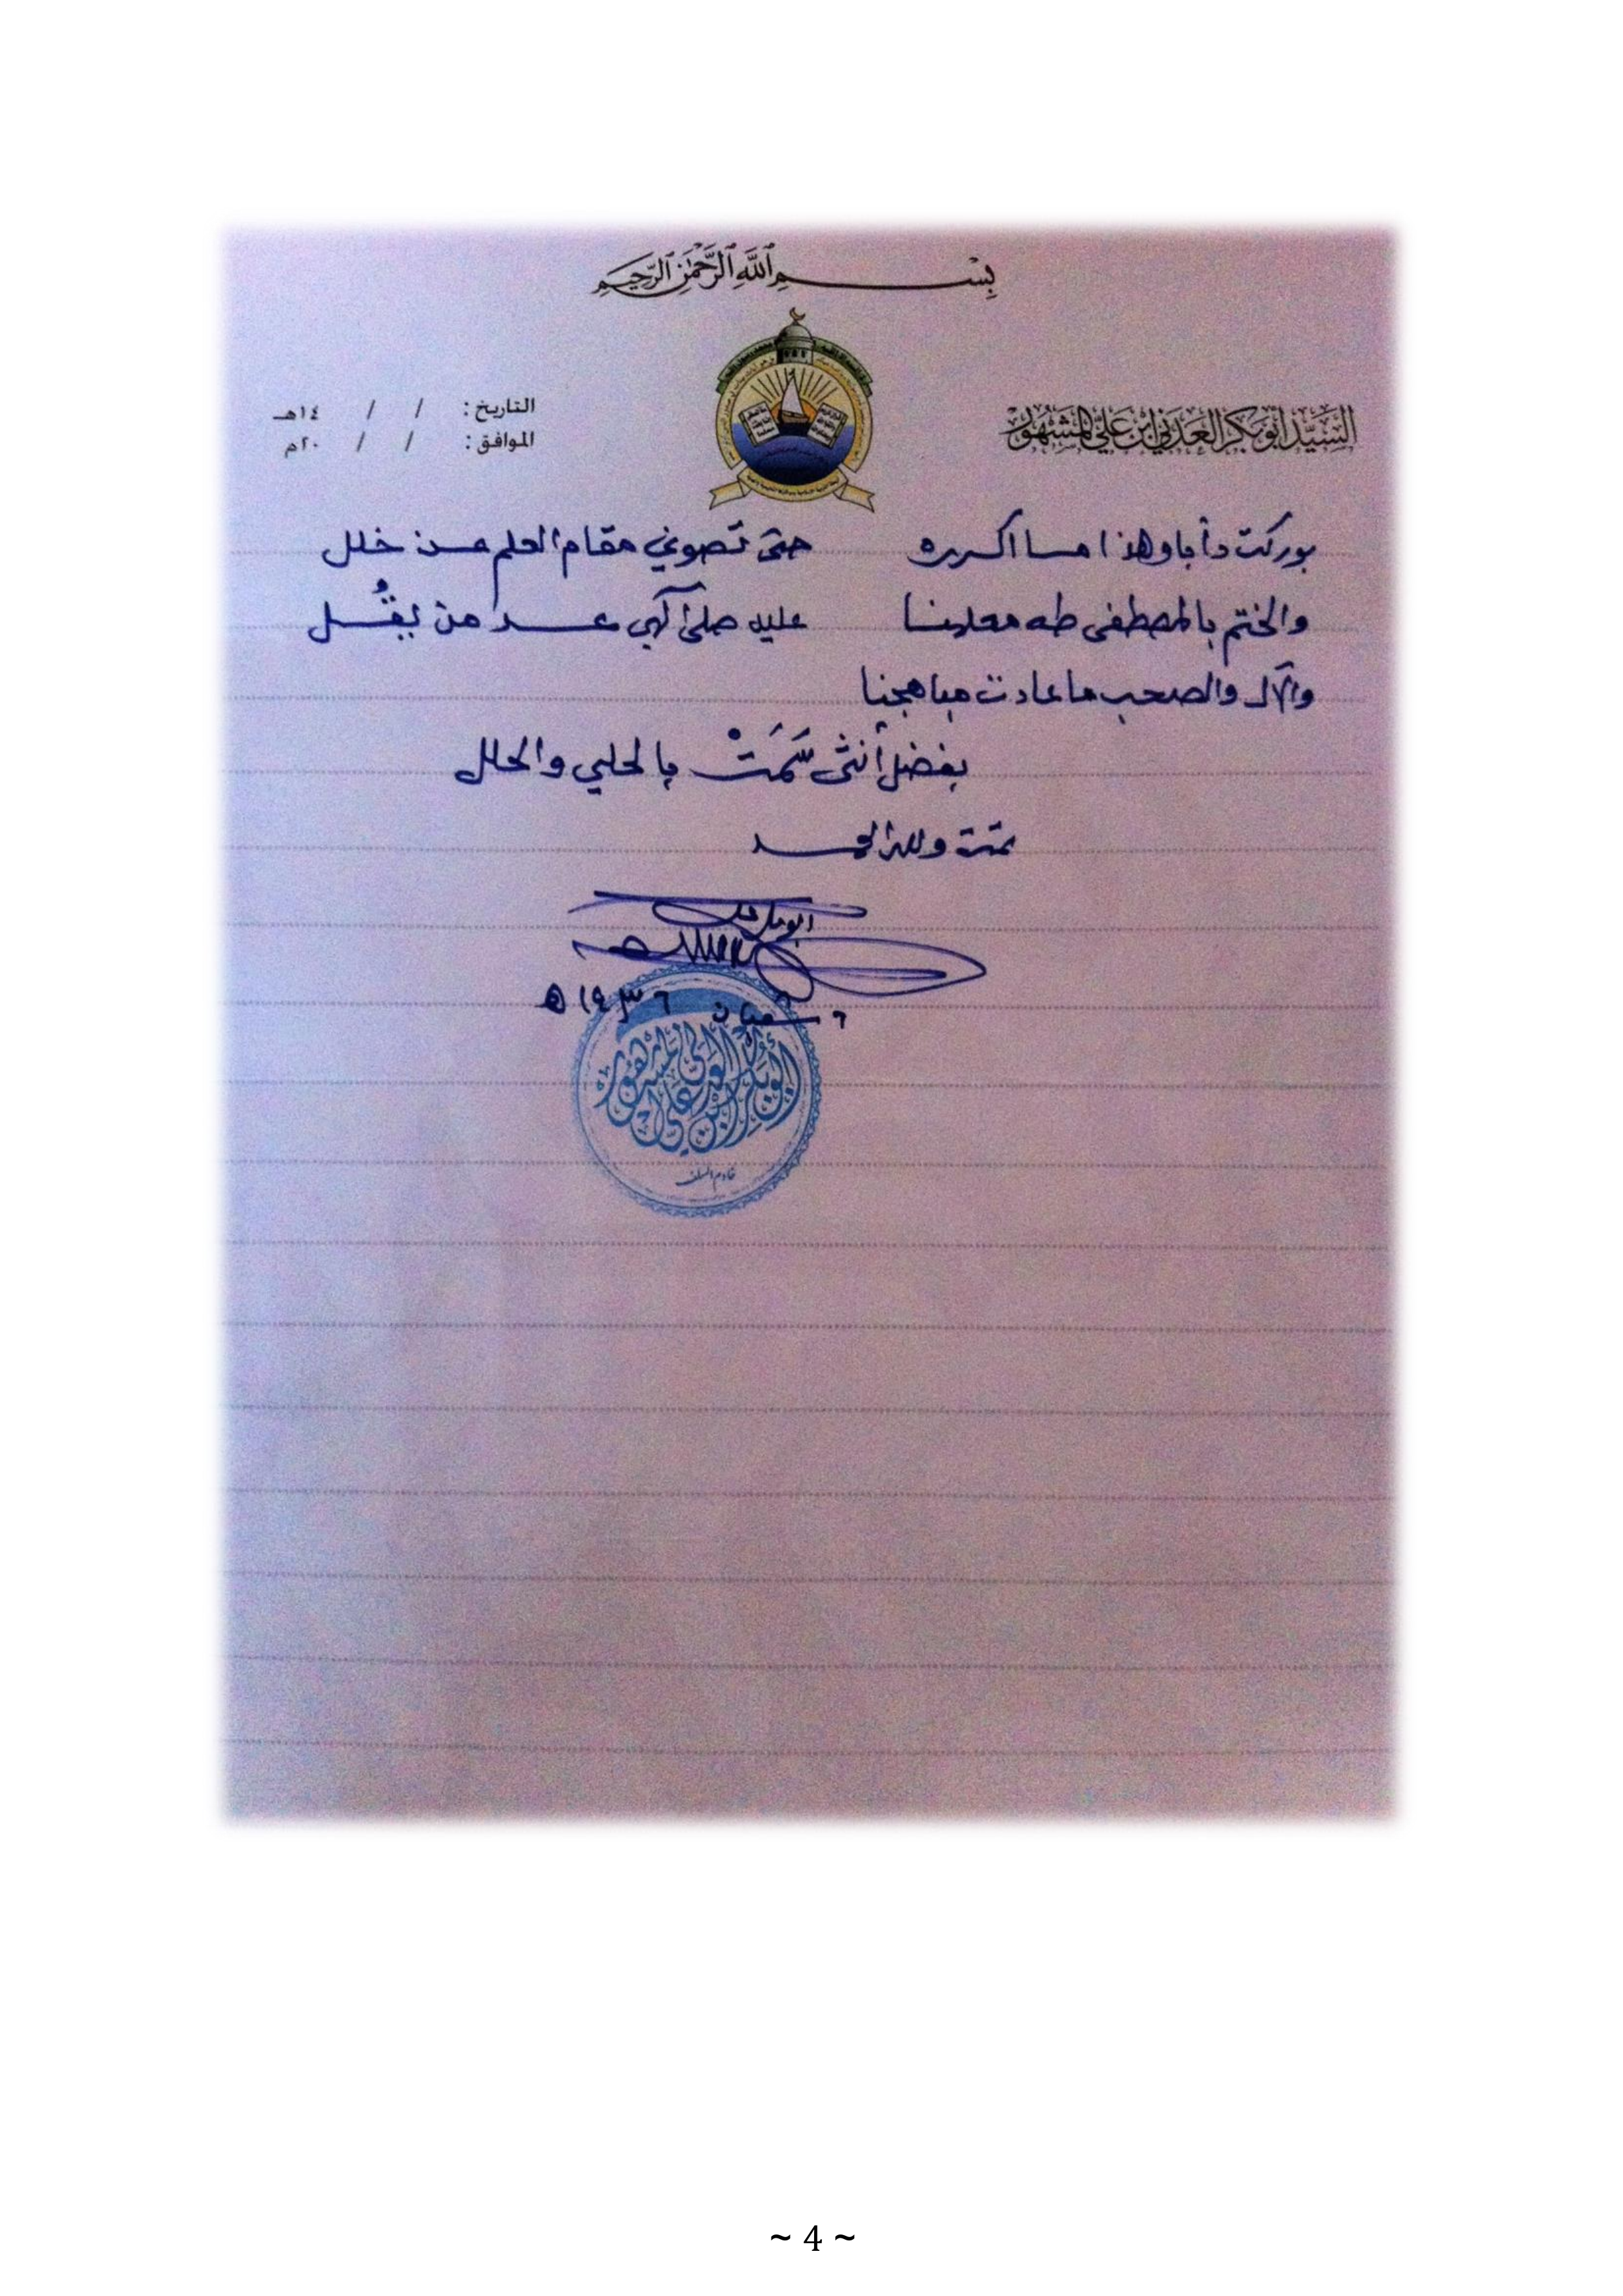 بِسْمِ ٱللَّهِ ٱلرَّحْمَٰنِ ٱلرَّحِيمِ
السَّيِّد أبوبكر العَدَني ابن علي المَشهُور
التاريخ : / / ١٤هـ
الموافق : / / ٢٠م
بوركت دأبا وهذا ما اكرره حتى تصوني مقام العلم عن خلل
والختم بالمصطفى طه معلمنا عليه صلى آلهي عد من يقُل
والآل والصحب ما عادت مباهجنا
بفضل أنثى سَمَتْ بالحلي والحلل
تمت ولله الحمد
٦ شعبان ١٤٣٦ ه
أبوبكر العدني ابن علي المشهور
خادم السلف
~ 4 ~